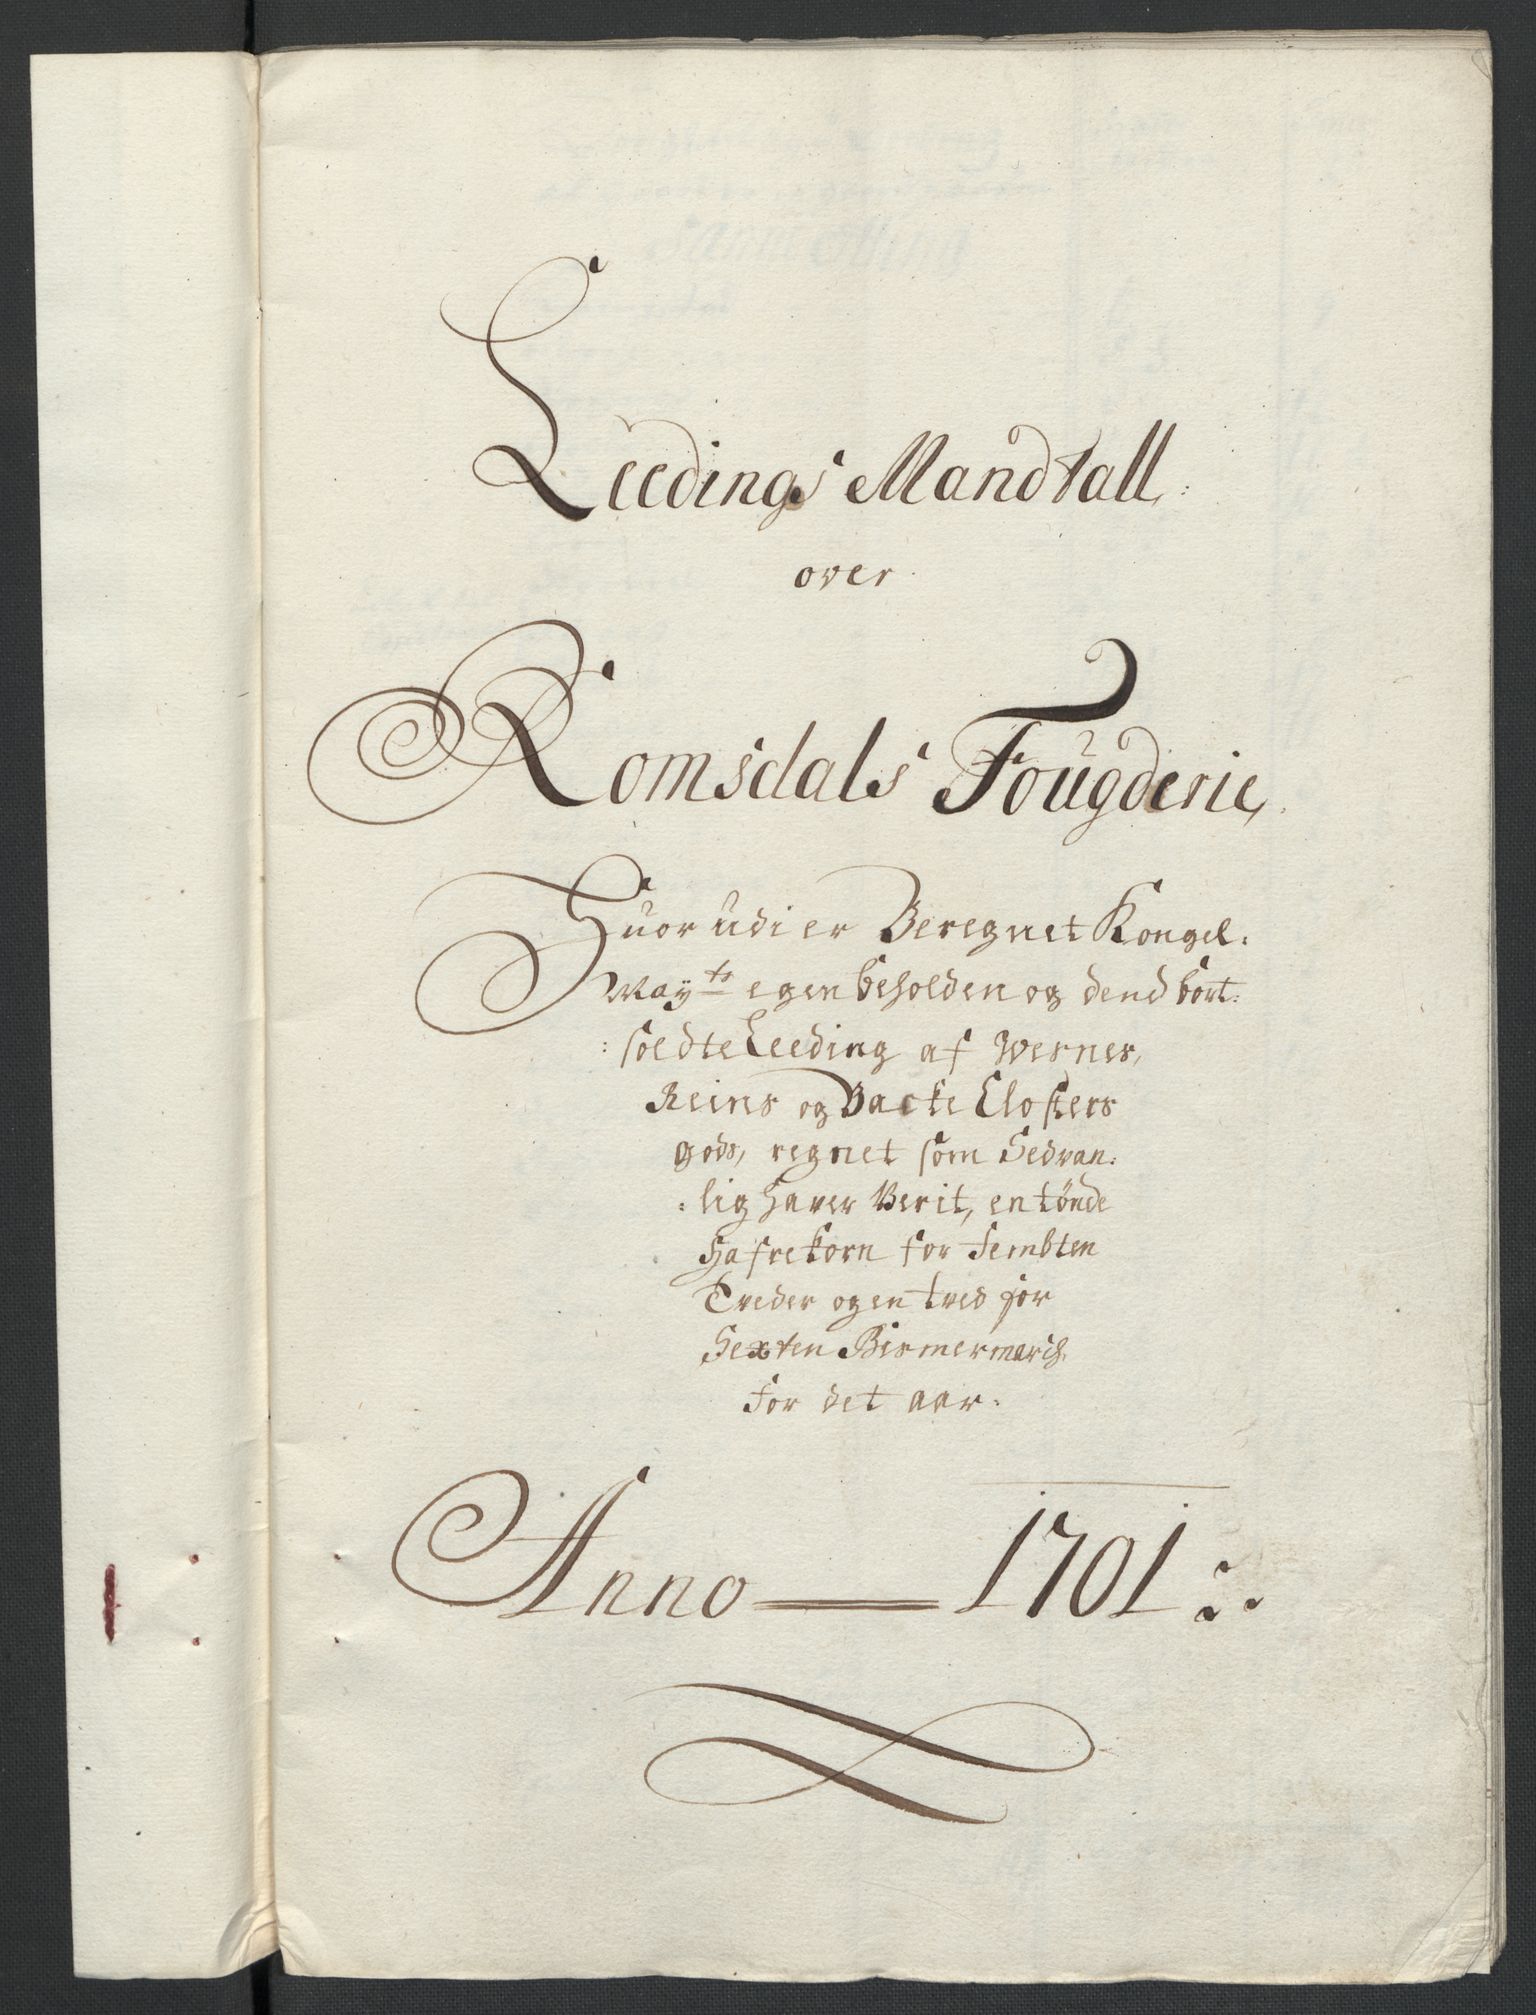 Leedings Mandtall,
over
Romsdals Fougderie,
Huor udi er Beregnet Kongel:
Mayts egen beholden og dend bort:
:soldte Leeding af Werner,
Reins og Backe Closters
gods, regnet som Sedvan:
:lig haver Verit, en tönde
Hafrekorn for fembten
Treder og en tred for
Sexten Bismermarch
for det aar.
Anno 1701